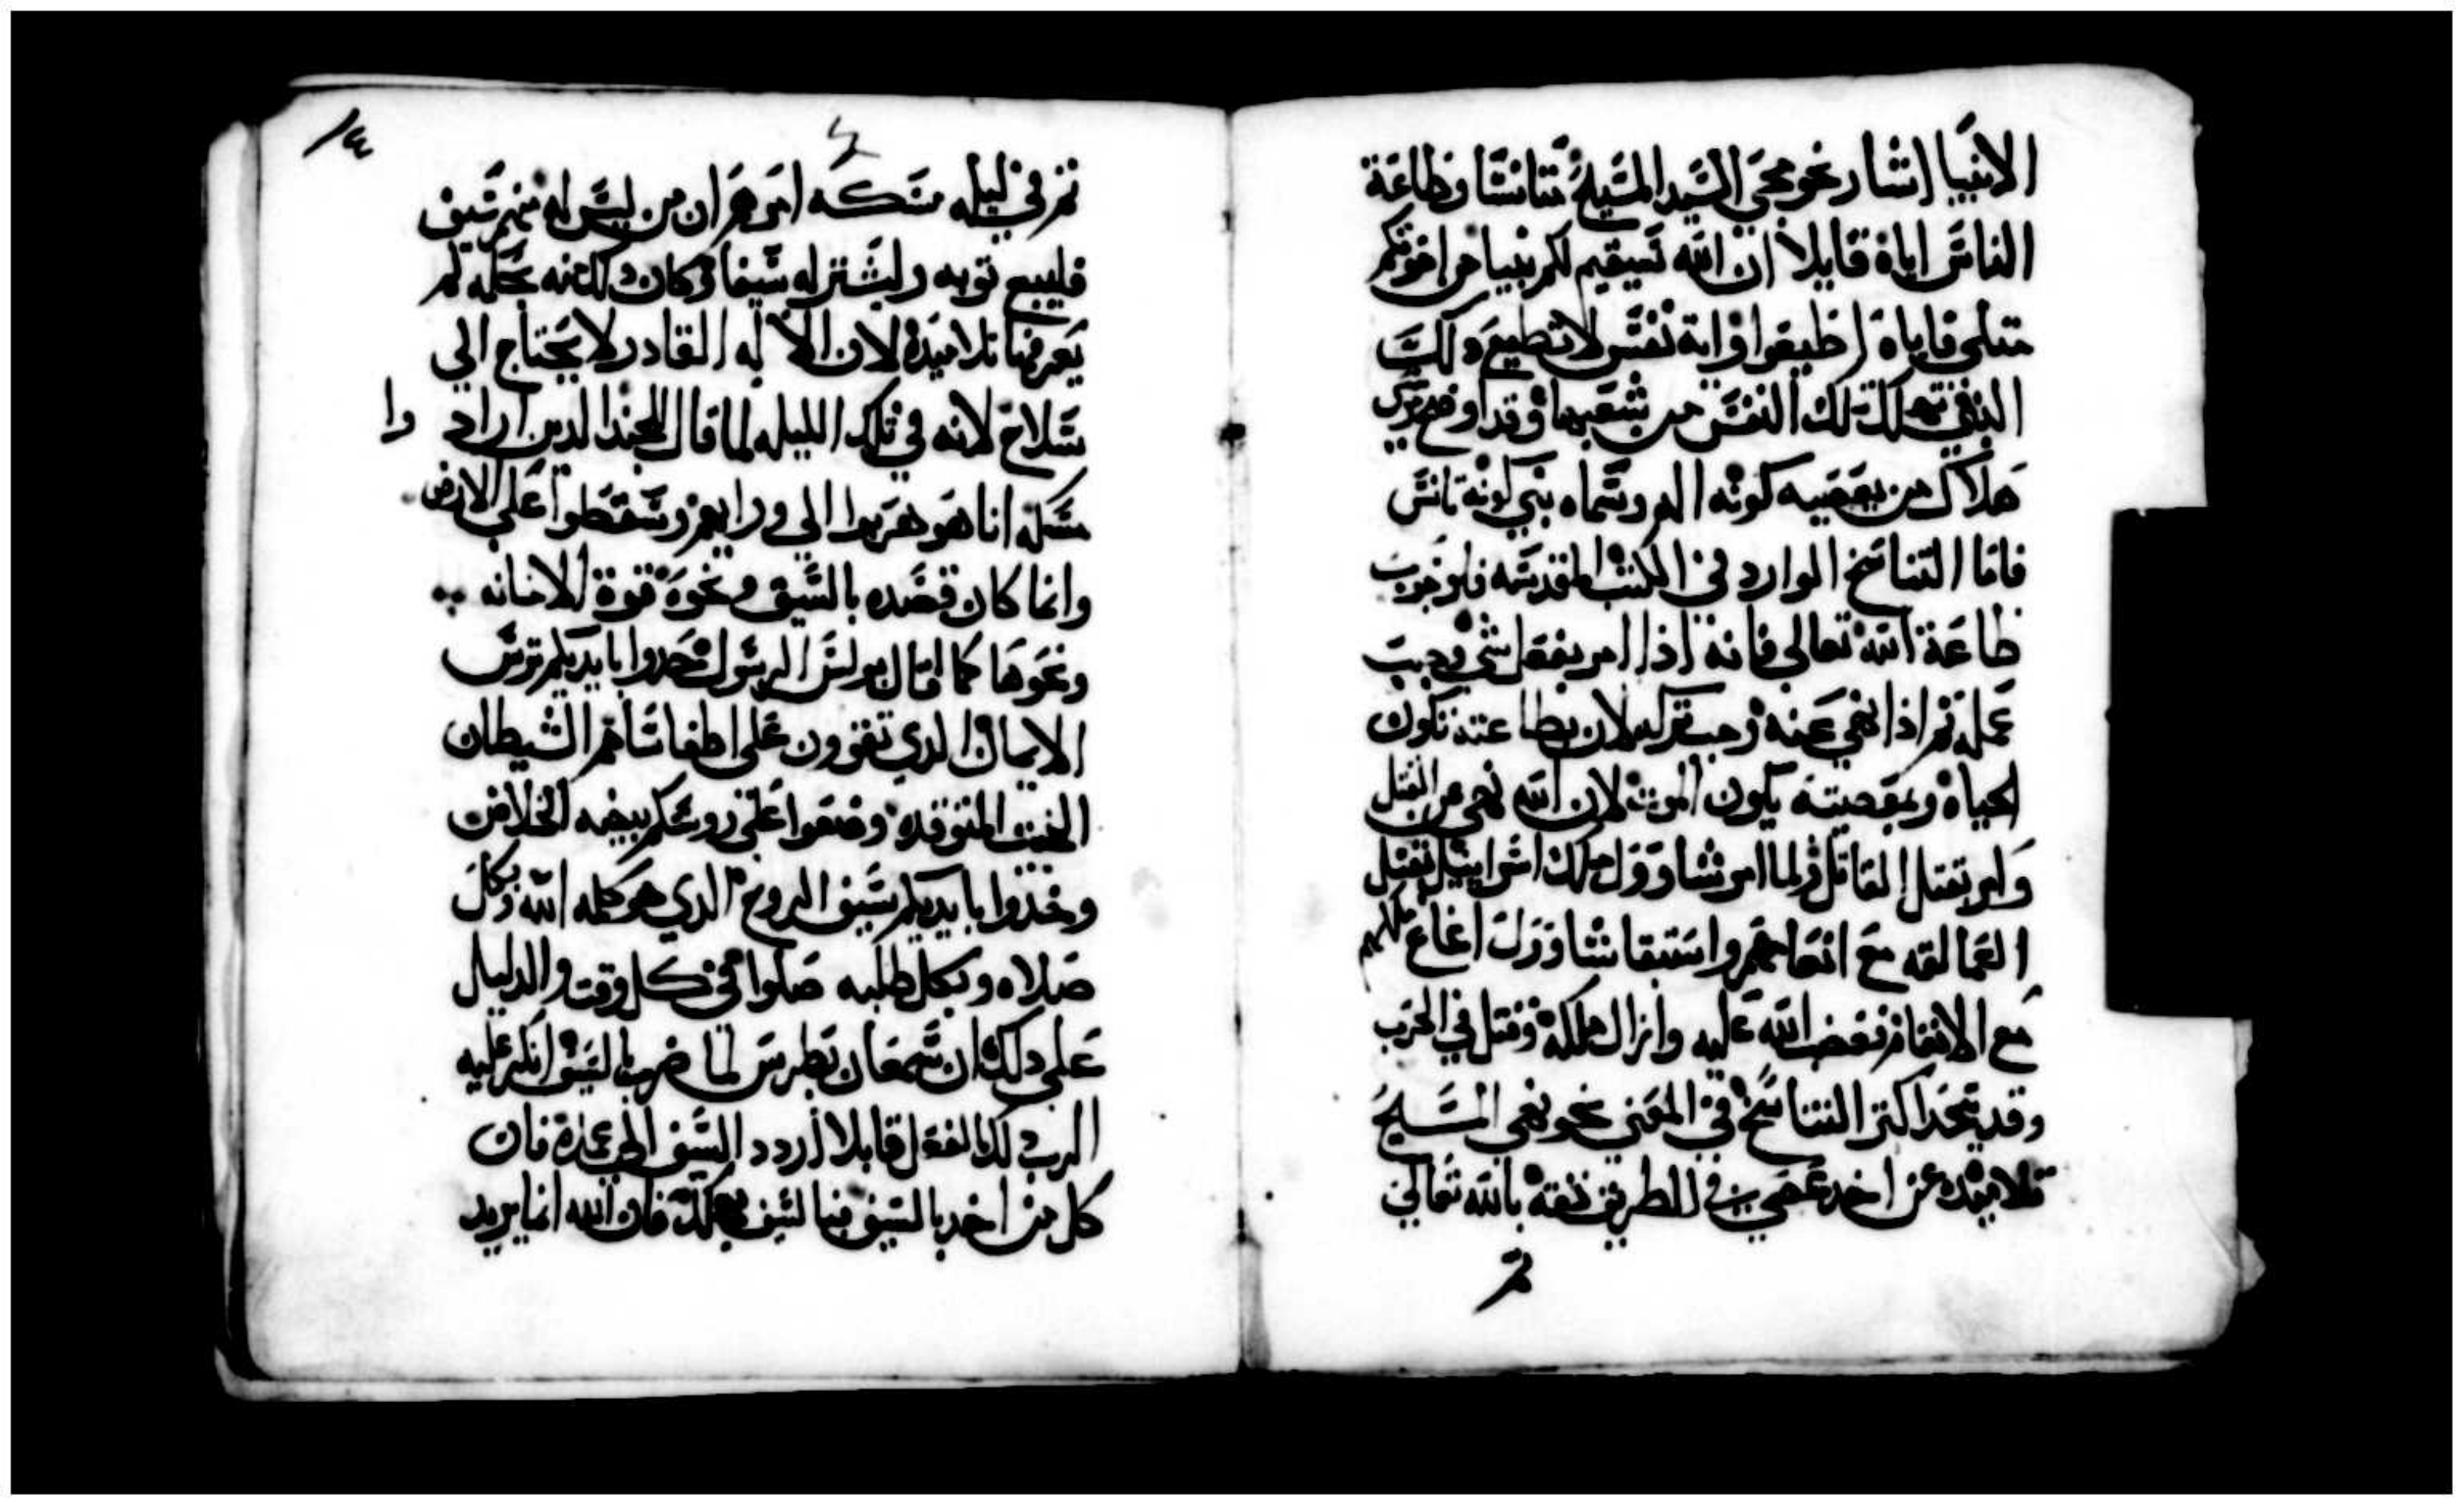 الانبيا اشار نحو مجي السيد المسيح متانسا وطاعة
الناس اياه قايلا ان الله سيقيم لكم نبيا من اخوتكم
متلي فاياه اطيعوا واية نفس لا تطيع دلك
النبي تهلك تلك النفس من شعبها وقد اوضح
هلاك من يعصيه كونه اله وسماه نبي كونه تانس
فاما التناسخ الوارد في الكتب المقدسه فلوجوب
طاعة الله تعالي فانه اذا امر بفعل شي وجب
عمله تم اذا نهي عنه وجب تركه لان بطاعته تكون
الحياه وبمعصيته يكون الموت لان الله نهي عن القتل
وامر بقتل القاتل ولما امر شاوول ملك اسراييل بقتل
العمالقه مع انعامهم واستبقا شاوول اغاع ملكهم
مع الانعام فغضب الله عليه وازال ملكه وقتل في الحرب
وقد تجد اكتر التناسخ في المعني نحو نهي المسيح
تلاميده عن اخد عصي في الطريق تقة بالله تعالي
تم
١٤
تم في ليله مسكه امرهم ان من ليس له منهم سيف
فليبيع توبه وليشتر له سيفا وكان دلك منه بحكمه لم
يعرفها تلاميده لان الاله القادر لا يحتاج الي
سلاح لانه في تلك الليله لما قال للجند الدين ارادوا
مسكه انا هو هربوا الي ورايهم وسقطوا علي الارض
وانما كان قصده بالسيف ونحوه قوة الامانه
ونحوها كما قال بولس الرسول خدوا بايديكم ترس
الايمان الدي تقوون علي اطفا سهام الشيطان
الخبيت المتوقده وضعوا علي روسكم بيضه الخلاص
وخدوا بايديكم سيف الروح الدي هو كلمه الله وبكل
صلاه وبكل طلبه صلوا في كل وقت والدليل
علي دلك ان شمعان بطرس لما ضرب بالسيف انكر عليه
الرب دلك الفعل قايلا اردد السيف الي غمده فان
كل من اخد بالسيف فبالسيف يهلك فان الله انما يريد